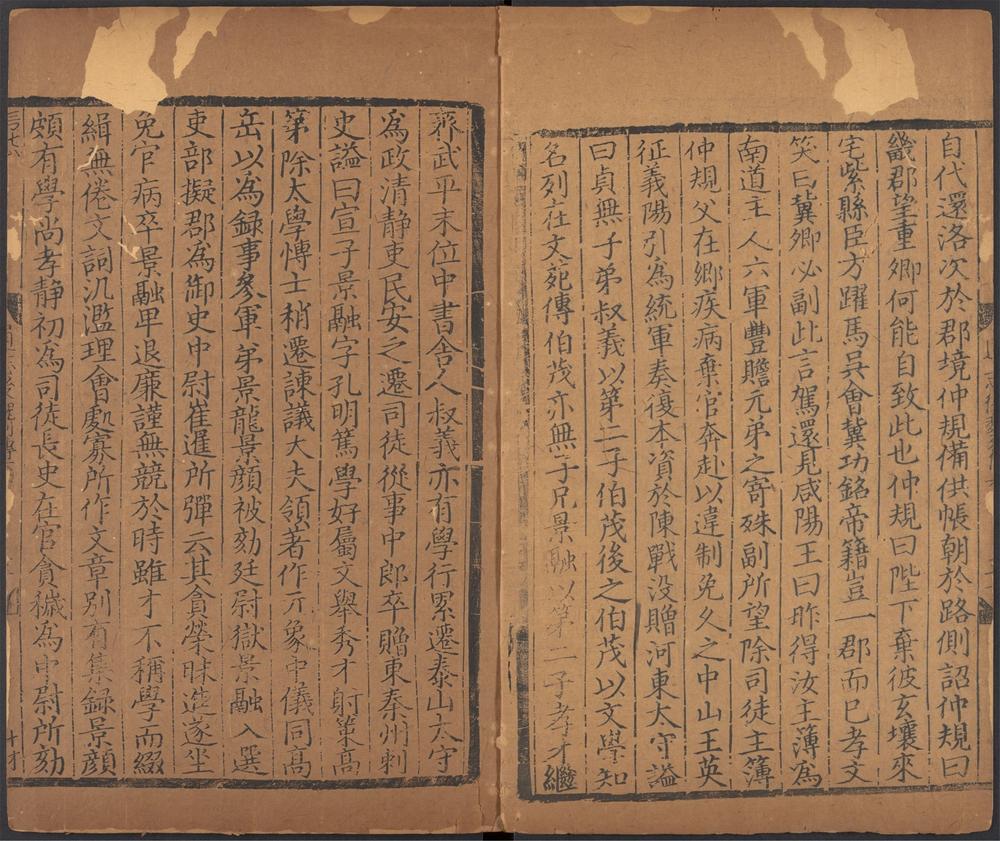 自代還洛次於郡境仲規備供帳朝於路側詔仲規曰
畿郡望重卿何能自致此也仲規曰陛下棄彼玄壤來
宅紫縣臣方躍馬吳會冀功銘帝籍豈一郡而已孝文
笑曰冀卿必副此言駕還見咸陽王曰昨得汝主簿為
南道主人六軍豐贍元弟之寄殊副所望除司徒主簿
仲規父在鄉疾病棄官奔赴以違制免久之中山王英
征義陽引為統軍奏復本資於陳戰没贈河東太守謚
曰貞無子弟叔義以第二子伯茂後之伯茂以文學知
名列在文苑傳伯茂亦無子兄景融以第二子孝才繼
齊武平末位中書舍人叔義亦有學行累遷泰山太守
為政清静吏民安之遷司徒從事中郎卒贈東秦州刺
史謚曰宣子景融字孔明篤學好屬文舉秀才射策髙
第除太學愽士稍遷諫議大夫領著作亓象中儀同高
岳以為録事參軍弟景龍景顏被劾廷尉獄景融入選
吏部擬郡為御史中尉崔暹所彈云其貪榮昧進遂坐
免官病卒景融卑退廉謹無競於時雖才不稱學而綴
緝無倦文詞汎濫理會處寡所作文章别有集録景顏
頗有學尚孝静初為司徒長史在官貪穢為中尉所劾